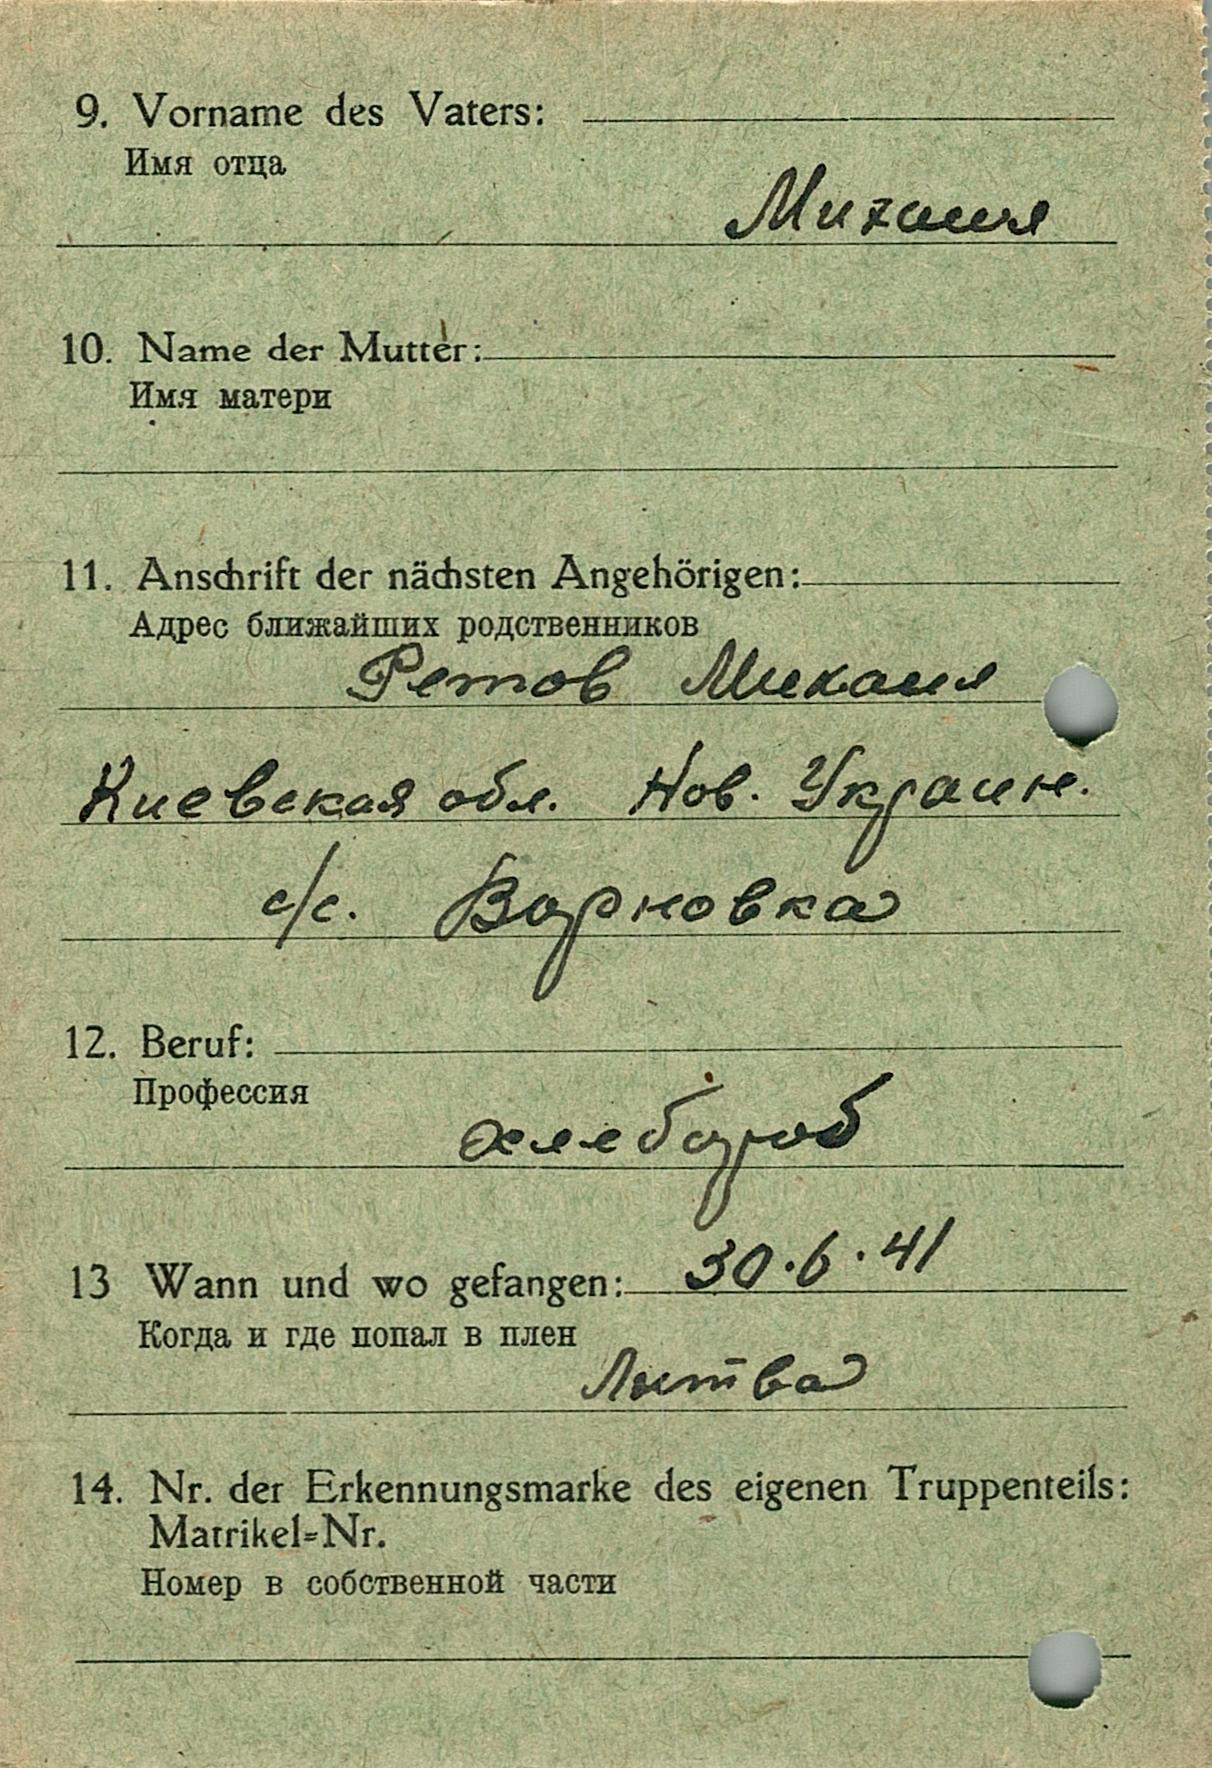 9. Vorname des Vaters:
Имя отца
Михаил
10. Name der Mutter:
Имя матери
11. Anschrift der nächsten Angehörigen:
Адрес ближайших родственников
Ретов Михаил
Киевская обл. Нов. Украин.
с/с. Варновка
12. Beruf:
Профессия
хлебороб
13 Wann und wo gefangen: 30.6.41
Когда и где попал в плен
Литва
14. Nr. der Erkennungsmarke des eigenen Truppenteils:
Matrikel=Nr.
Номер в собственной части